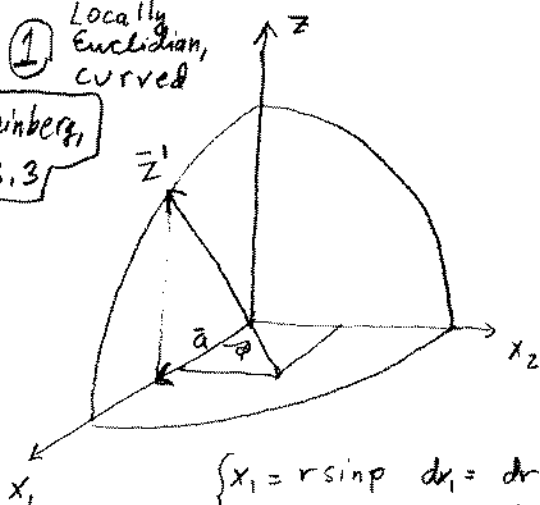 ① Locally
Euclidian,
curved
inberg,
3
z
z̄'
ā
φ
x₂
x₁
{x₁ = r sinp dx₁ = dr